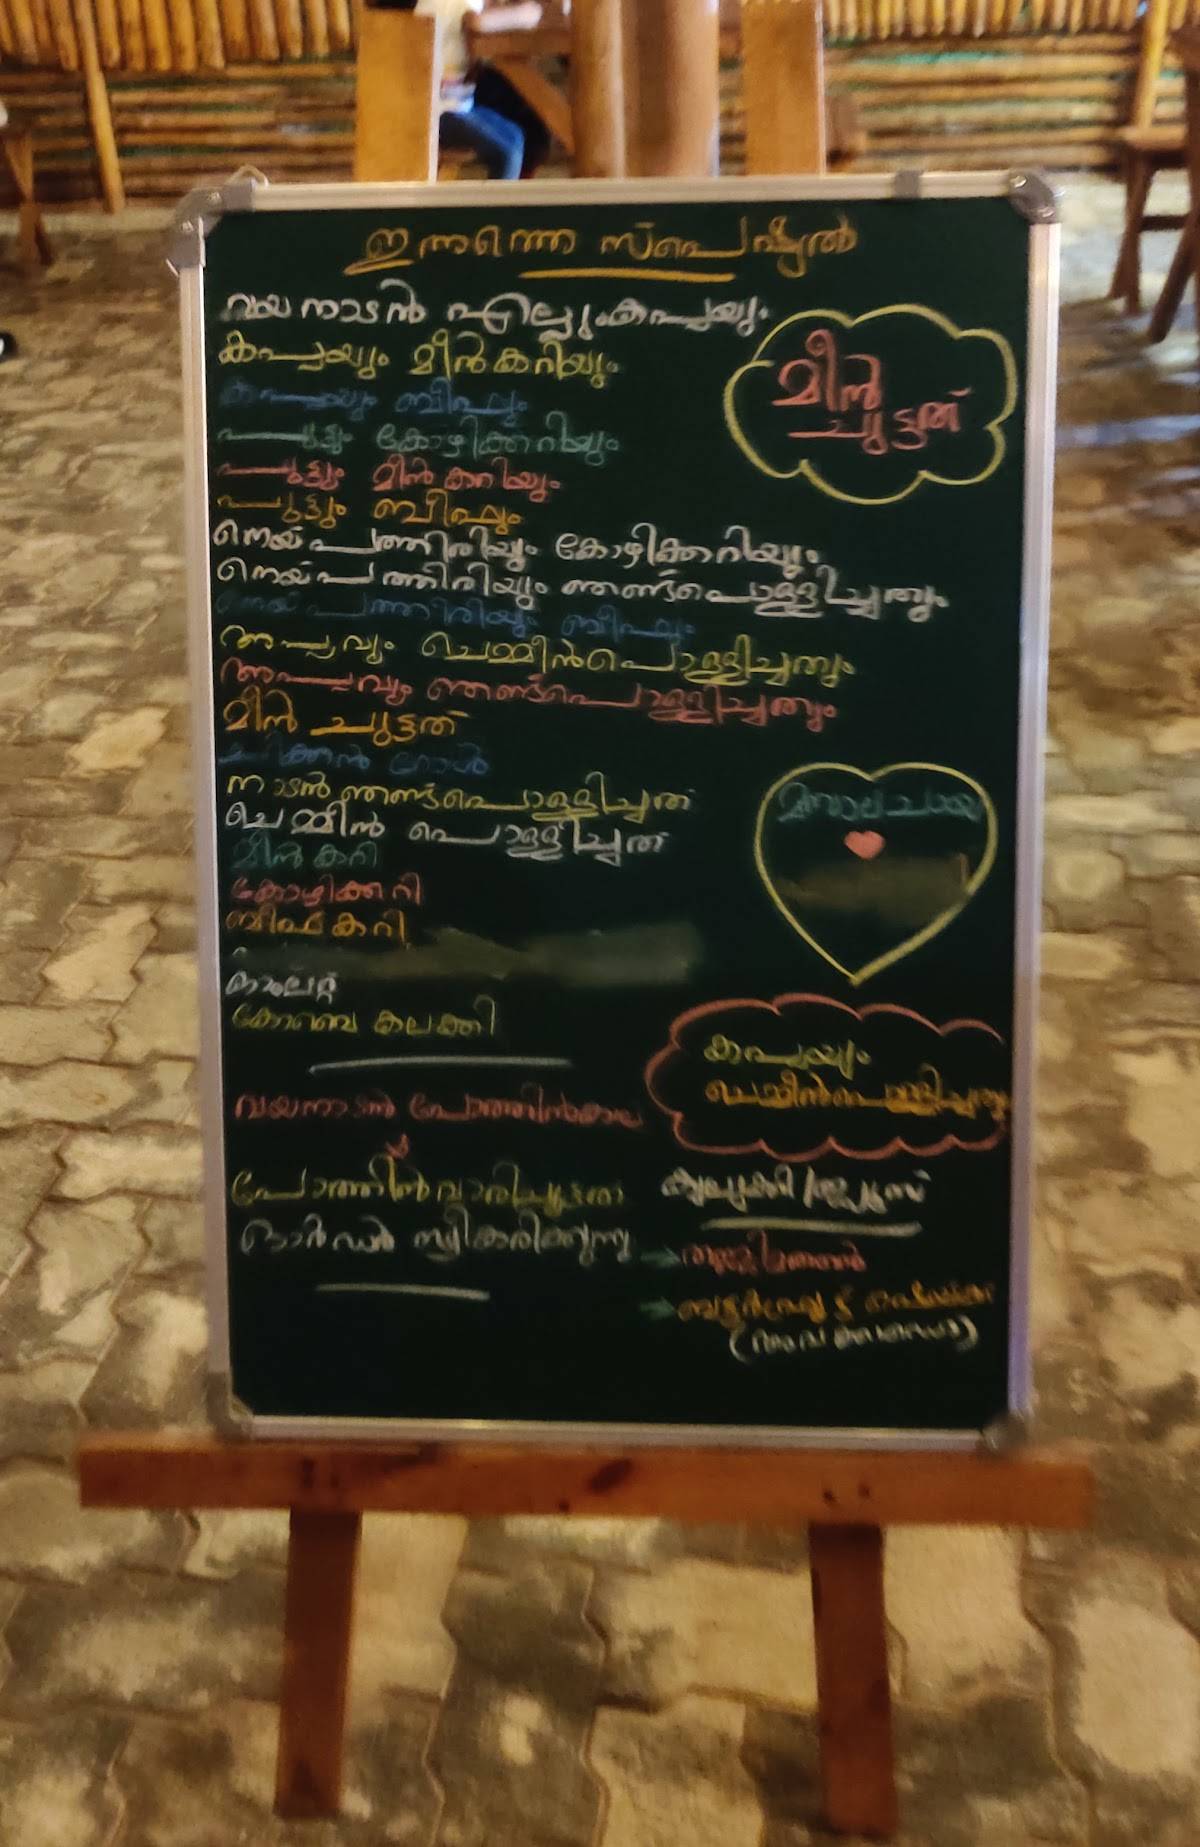 ഇന്നത്തെ സ്പെഷ്യൽ
വയനാടൻ എല്ലുംകപ്പയും
കപ്പയും മീൻകറിയും
കപ്പയും ബീഫും
പുട്ടും കോഴിക്കറിയും
പുട്ടും മീൻകറിയും
പുട്ടും ബീഫും
നെയ്പത്തിരിയും കോഴിക്കറിയും
നെയ്പത്തിരിയും ഞണ്ട്പൊള്ളിച്ചതും
നെയ്പത്തിരിയും ബീഫും
അപ്പവും ചെമ്മീൻപൊള്ളിച്ചതും
അപ്പവും ഞണ്ട്പൊള്ളിച്ചതും
മീൻ ചുട്ടത്
ചിക്കൻ റോൾ
നാടൻഞണ്ട്പൊള്ളിച്ചത്
ചെമ്മീൻ പൊള്ളിച്ചത്
മീൻകറി
കോഴിക്കറി
ബീഫ്കറി
കലക്കി
വയനാടൻ പോത്തിൻകാല്
പോത്തിൻവാരിച്ചുട്ടത്
ഓർഡർ സ്വീകരിക്കുന്നു
മീൻ
ചുട്ടത്
കപ്പയും
ചെമ്മീൻപൊള്ളിച്ചതും